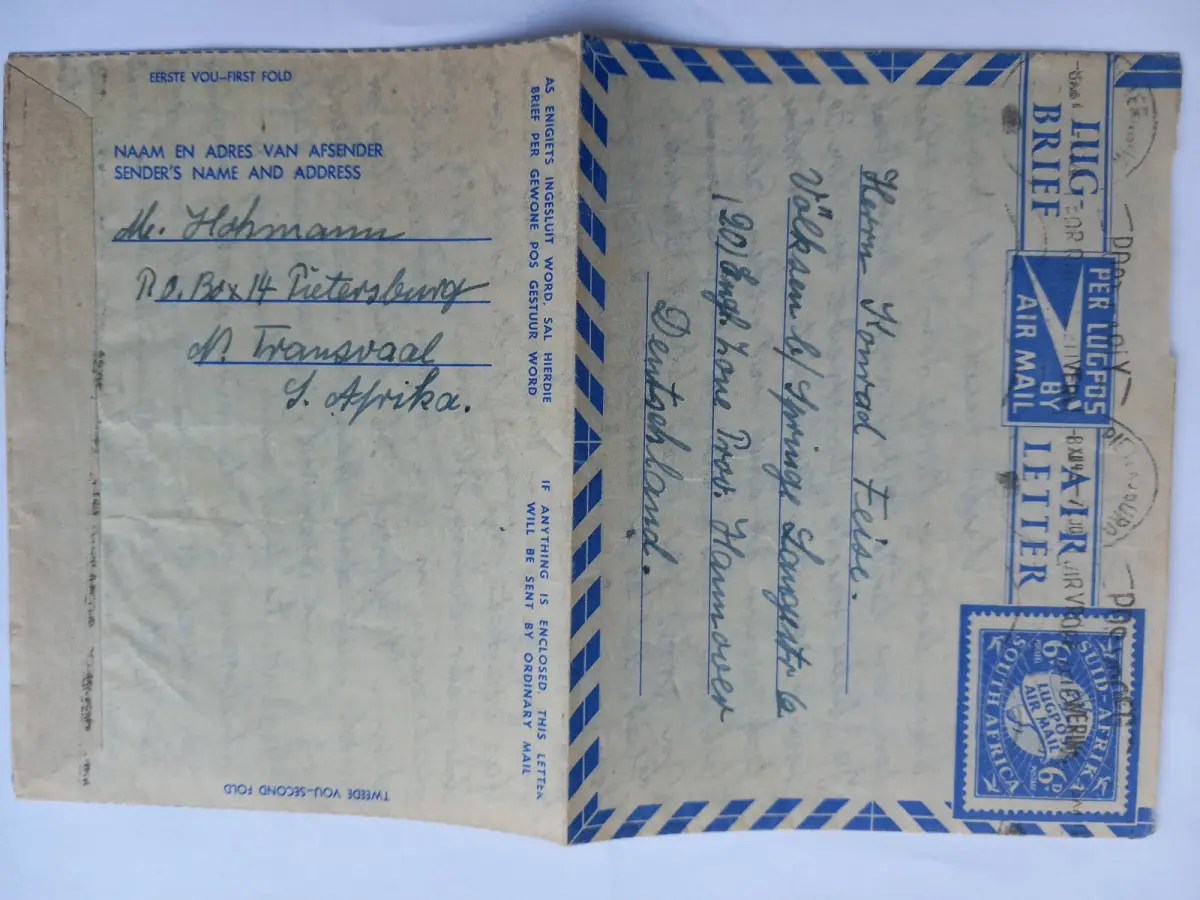 EERSTE VOU–FIRST FOLD
NAAM EN ADRES VAN AFSENDER
SENDER'S NAME AND ADDRESS
M. Hohmann
P.O. Box 14 Pietersburg
N. Transvaal
S. Afrika.
TWEEDE VOU–SECOND FOLD
AS ENIGIETS INGESLUIT WORD, SAL HIERDIE
BRIEF PER GEWONE POS GESTUUR WORD
IF ANYTHING IS ENCLOSED, THIS LETTER
WILL BE SENT BY ORDINARY MAIL
LUG-
BRIEF
PER LUGPOS
BY
AIR MAIL
AIR
LETTER
SUID-AFRIKA
6D
POSSEEL
LUGPOS
AIR MAIL
6D
SOUTH AFRICA
Herrn Konrad Feise.
Völksen b/ Springe Langestr 6
(20) Engl. Zone Prov. Hannover
Deutschland.